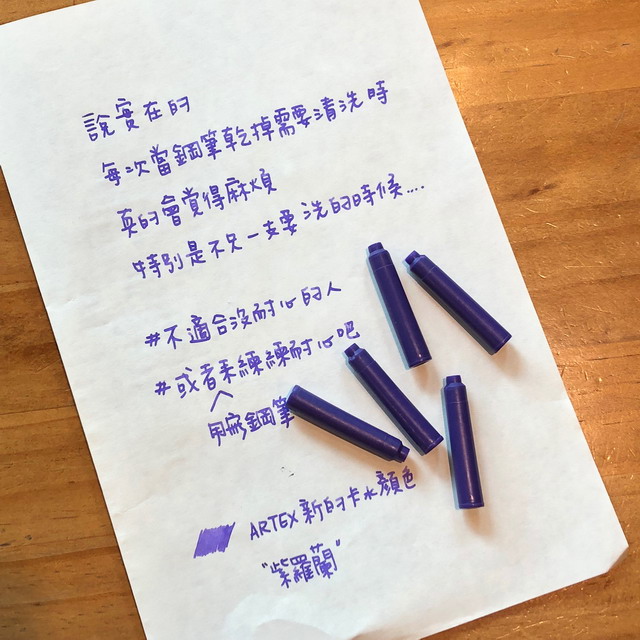 說實在的
每次當鋼筆乾掉需要清洗時
真的會覺得麻煩
特別是不只一支要洗的時候....
#不適合沒耐心的人
#或者來練練耐心吧
用鋼筆
ARTEX新的卡水顏色
"紫羅蘭"